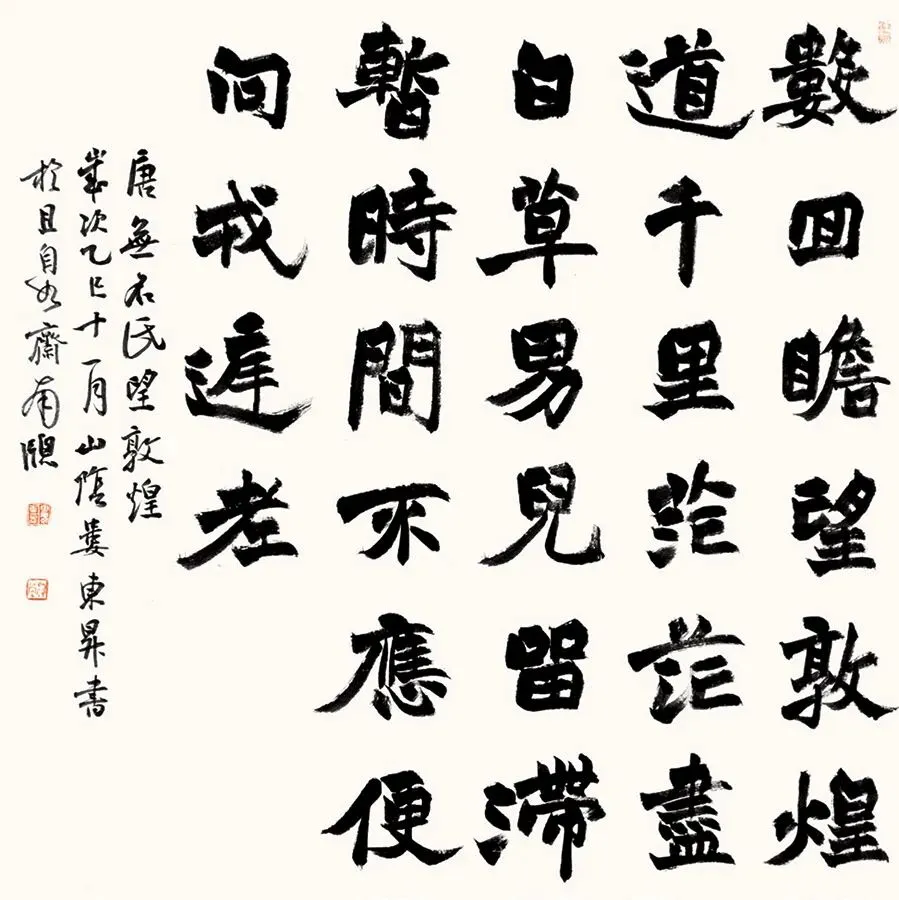 數回瞻望敦煌
道千里茫茫盡
白草男兒留滯
暫時間不應便
向戎遲老
唐無名氏望敦煌
歲次乙巳十一月山陰婁東昇書
於且自如齋南牕